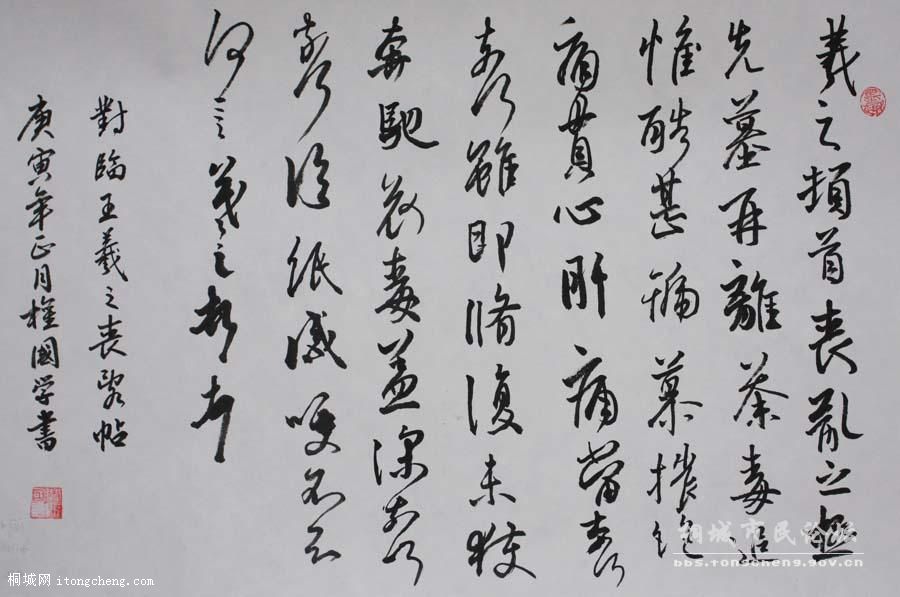 羲之頓首喪亂之極
先墓再離荼毒追
惟酷甚號慕摧絕
痛貫心肝痛當奈何
奈何雖即脩復未獲
奔馳哀毒益深奈何
奈何臨紙感哽不知
何言羲之頓首頓首
對臨王羲之喪亂帖
庚寅年正月權國学書
桐城网 itongcheng.com
桐城市民论坛
bbs.tongcheng.gov.cn